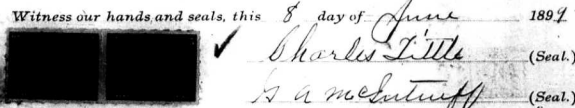 Witness our hands and seals, this 8 day of June 1899
Charles Little (Seal.)
A McInturff (Seal.)